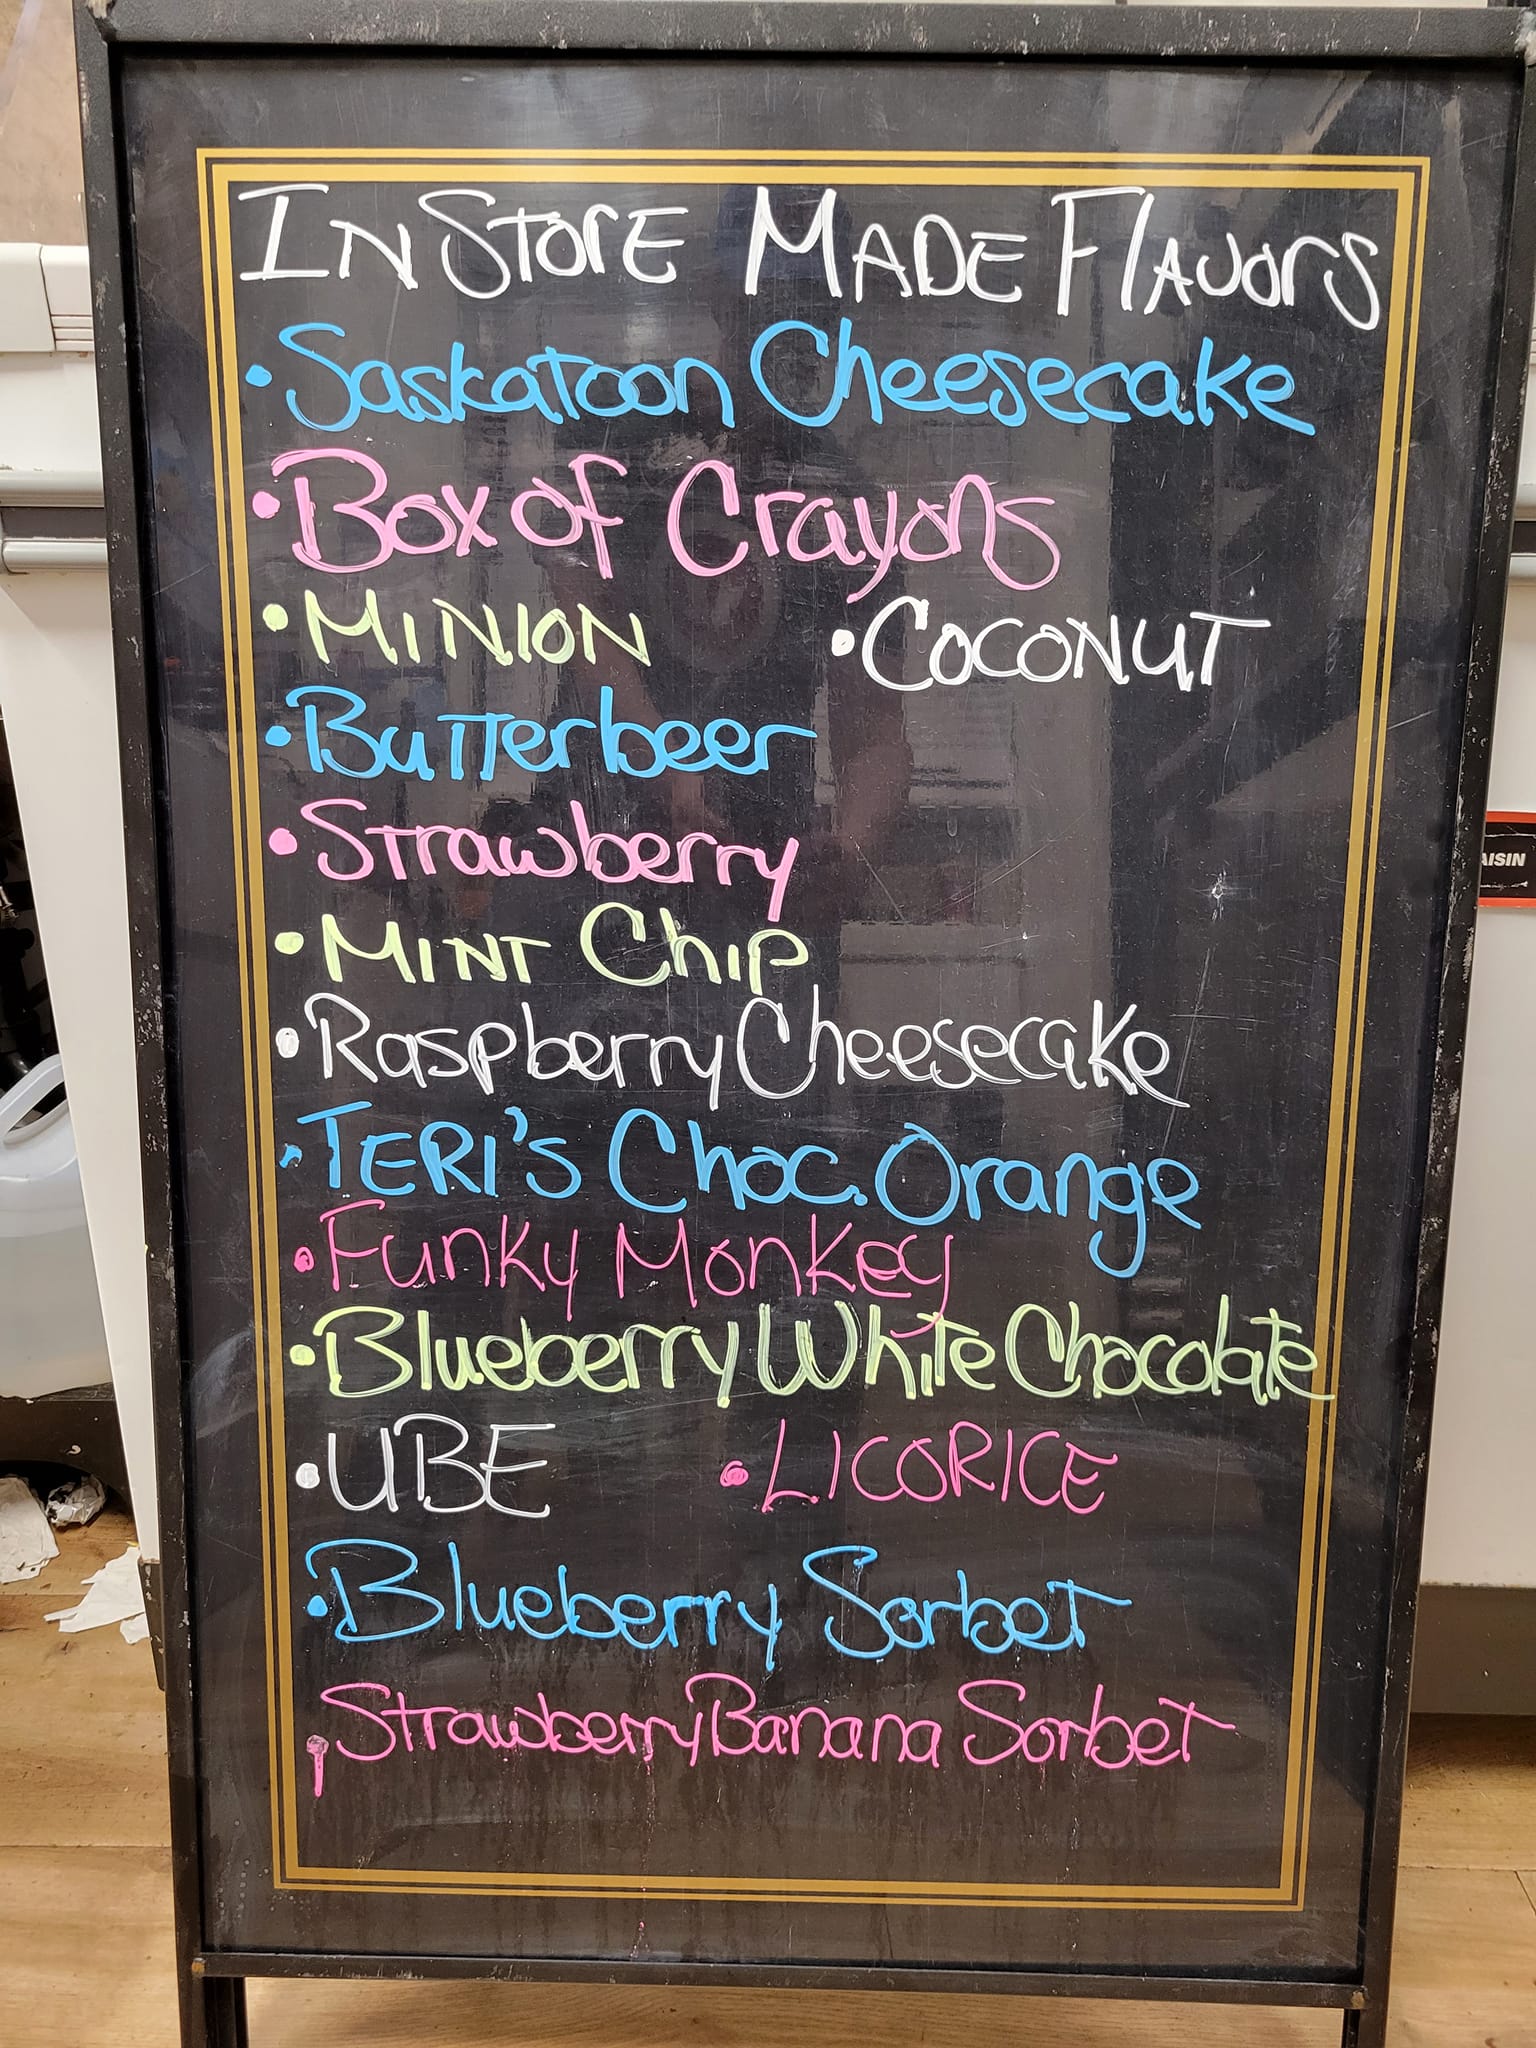 In Store Made Flavors
• Saskatoon Cheesecake
• Box of Crayons
• Minion • Coconut
• Butterbeer
• Strawberry
• Mint Chip
• Raspberry Cheesecake
• Teri's Choc. Orange
• Funky Monkey
• Blueberry White Chocolate
• UBE • LICORICE
• Blueberry Sorbet
• Strawberry Banana Sorbet
AISIN